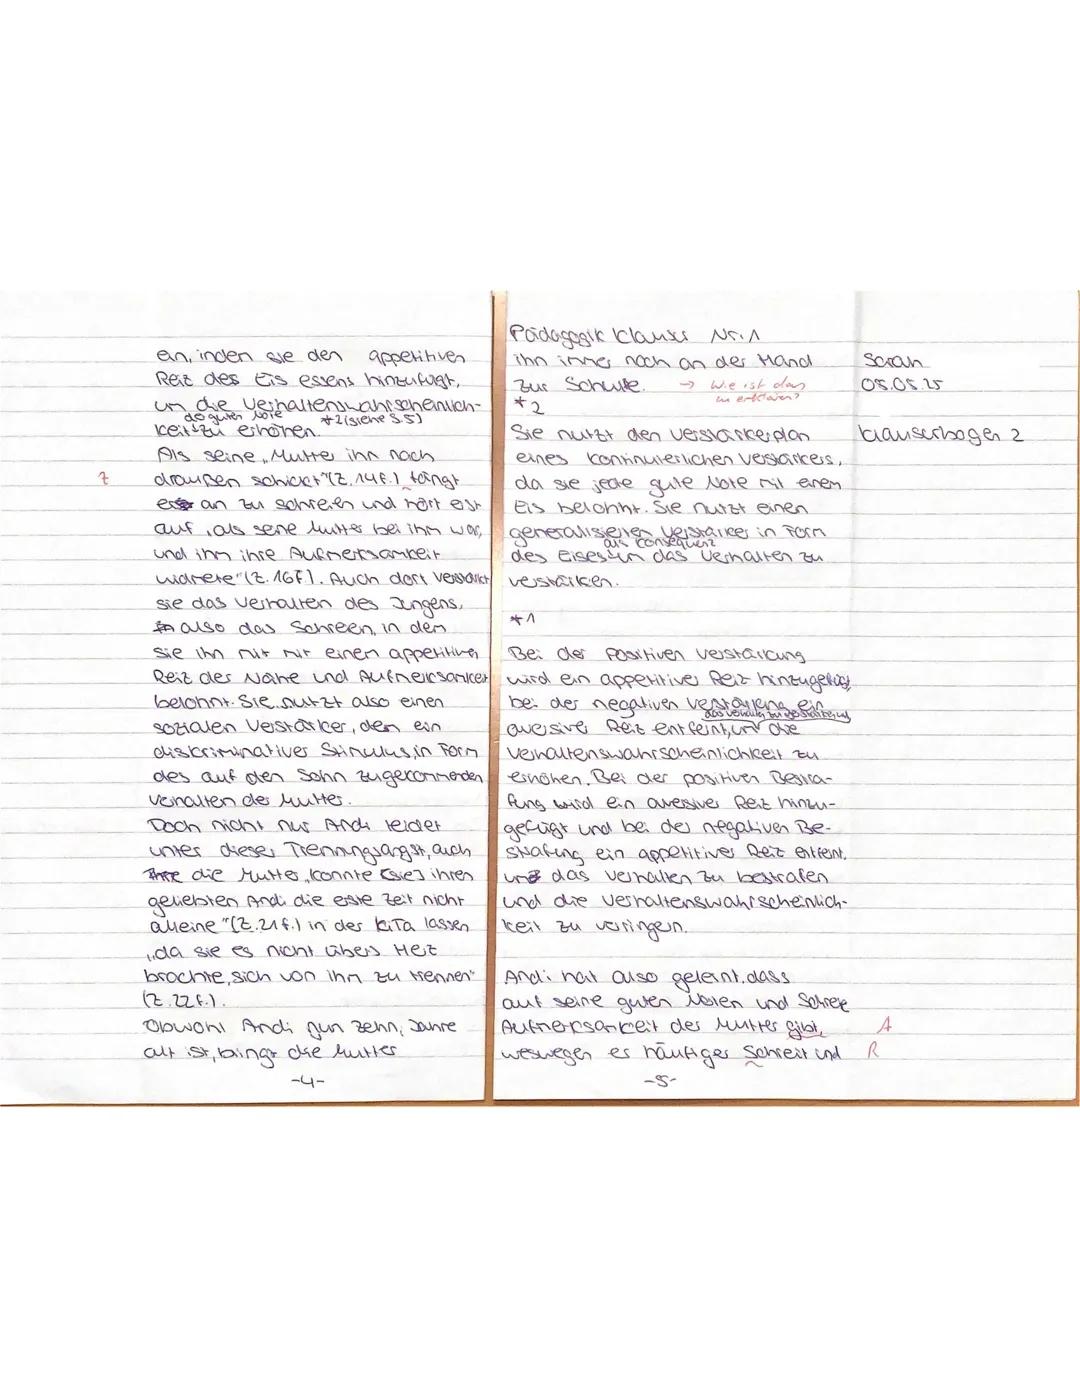 ein, indem sie den appetitiven
Reiz des Eis essens hinzufügt,
um die Verhaltenswahrscheinlich-
der guten Note *2 (siehe S.5)
keit zu erhöhen.
Als seine „Mutter ihn nach
Z
draußen schickt" (Z.14f.) fängt
er an zu schreien und hört erst
auf „als seine Mutter bei ihm war,
und ihm ihre Aufmerksamkeit
widmete" (Z.16f.). Auch dort verstärkt
sie das Verhalten des Jungens,
also das Schreien, in dem
sie ihn mit einem appetitiven
Reiz der Nähe und Aufmerksamkeit
belohnt. Sie nutzt also einen
sozialen Verstärker, den ein
diskriminativer Stimulus, in Form
des auf den Sohn zugekommenden
Verhalten der Mutter.
Doch nicht nur Andi leidet
unter dieser Trennungsangst, auch
die Mutter „konnte [sie] ihren
geliebten Andi die erste Zeit nicht
alleine" (Z.21f.) in der KiTa lassen
„da sie es nicht übers Herz
brachte, sich von ihm zu trennen"
(Z.22f.).
Obwohl Andi nun zehn, Jahre
alt ist, bringt die Mutter
-4-
Pädagogik Klausur Nr.1
ihn immer noch an der Hand
zur Schule. → Wie ist das
zu erklären?
*2
Sie nutzt den Verstärkerplan
eines kontinuierlichen Verstärkers,
da sie jede gute Note mit einem
Eis belohnt. Sie nutzt einen
generalisierten Verstärker in Form
als Konsequenz
des Eises um das Verhalten zu
verstärken.
*1
Bei der positiven Verstärkung
wird ein appetitiver Reiz hinzugefügt
bei der negativen Verstärkung ein
das Verhalten zu verstärken und
aversiver Reiz entfernt, um die
Verhaltenswahrscheinlichkeit zu
erhöhen. Bei der positiven Bestra-
fung wird ein aversiver Reiz hinzu-
gefügt und bei der negativen Be-
strafung ein appetitiver Reiz entfernt,
das Verhalten zu bestrafen
und die Verhaltenswahrscheinlich-
keit zu veringern.
Andi hat also gelernt, dass
auf seine guten Noten und Schreie
Aufmerksamkeit der Mutter gibt,
A
weswegen er häufiger Schreit und
R
-5-
Sarah
05.05.25
Klausurbogen 2